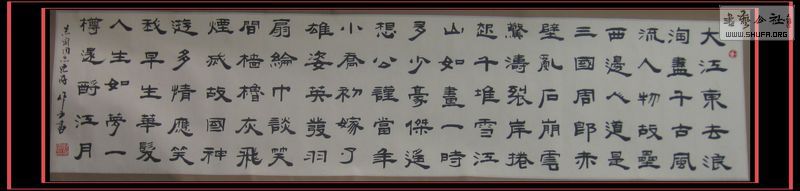 大江東去浪
淘盡千古風
流人物故壘
西邊人道是
三國周郎赤
壁亂石崩雲
驚濤裂岸捲
起千堆雪江
山如畫一時
多少豪傑遥
想公謹當年
小喬初嫁了
雄姿英發羽
扇綸巾談笑
間檣櫓灰飛
煙滅故國神
遊多情應笑
我早生華髮
人生如夢一
樽還酹江月
书艺公社
WWW.SHUFA.ORG